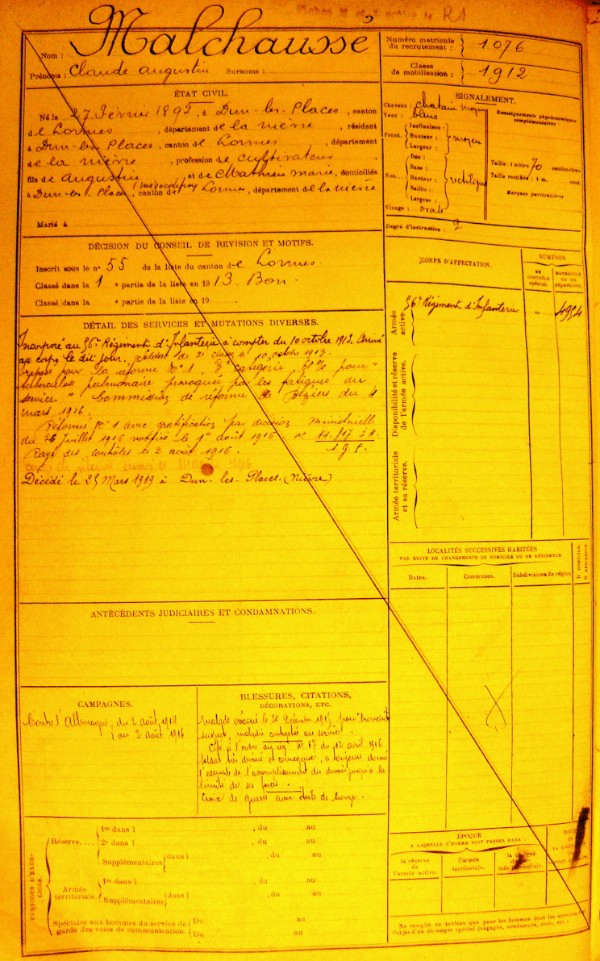 R1
Malchaussé
Nom :
Prénoms : Claude Augustin Surnoms :
Numéro matricule du recrutement : 1076
Classe de mobilisation : 1912
ÉTAT CIVIL.
Né le 27 Février 1892, à Dun-les-Places, canton
de Lormes, département de la Nièvre, résidant
à Dun-les-Places, canton de Lormes, département
de la Nièvre, profession de cultivateur
fils de Augustin et de Mathieu Marie, domiciliés
à Dun-les-Places, canton de Lormes, département de la Nièvre
Marié à
SIGNALEMENT.
Cheveux : chatain moyen
Yeux : bleus
Front. Inclinaison : Hauteur : Largeur : moyen
Nez. Dos : Base : Hauteur : Saillie : Largeur : rectiligne
Visage : ovale
Renseignements physionomiques complémentaires :
Taille : 1 mètre 70 centimètres
Taille rectifiée : 1 m. cent.
Marques particulières :
Degré d'instruction : 2
DÉCISION DU CONSEIL DE REVISION ET MOTIFS.
Inscrit sous le n° 55 de la liste du canton de Lormes
Classé dans la 1 e partie de la liste en 1913. Bon
Classé dans la e partie de la liste en 19
CORPS D'AFFECTATION.
NUMÉROS
au contrôle spécial.
matricule ou au répertoire.
Armée active.
56e Régiment d'Infanterie 4954
Disponibilité et réserve de l'armée active.
Armée territoriale et sa réserve.
DÉTAIL DES SERVICES ET MUTATIONS DIVERSES.
Incorporé au 56e Régiment d'Infanterie à compter du 10 octobre 1913. Arrivé
au corps le dit jour, soldat de 2e classe le 10 octobre 1913.
Proposé pour la réforme N° 1, 3e catégorie, pour
tuberculose pulmonaire provoquée par les fatigues du
service. Commission de réforme de Béziers du 4
mars 1916.
Réformé N° 1 avec gratification par décision ministérielle
du 26 Juillet 1916 notifiée le 1er août 1916
Rayé des contrôles le 2 août 1916.
Décédé le 25 Mars 1919 à Dun-les-Places (Nièvre)
LOCALITÉS SUCCESSIVES HABITÉES
PAR SUITE DE CHANGEMENTS DE DOMICILE OU DE RÉSIDENCE
Dates. Communes. Subdivisions de région. D. DOMICILE. R. RÉSIDENCE.
ANTÉCÉDENTS JUDICIAIRES ET CONDAMNATIONS.
CAMPAGNES.
Contre l'Allemagne, du 2 août 1914
au 2 août 1916
BLESSURES, CITATIONS,
DÉCORATIONS, ETC.
Malade évacué le 31 Décembre 1915, pour bronchite
maladie contractée au service
Cité à l'ordre N° 17 du 12 août 1916
soldat très dévoué et courageux, a toujours donné
l'exemple de l'accomplissement du devoir jusqu'à la
limite de ses forces.
Croix de guerre avec étoile de bronze.
PÉRIODES D'EXERCICES.
Réserve
1re dans l , du au
2e dans l , du au
Supplémentaires dans l , du au
Armée territoriale.
1re dans l , du au
Supplémentaires dans l , du au
Spéciale aux hommes du service de garde des voies de communication. Du au
Du au
ÉPOQUE
A LAQUELLE L'HOMME DOIT PASSER DANS :
la réserve de l'armée active.
l'armée territoriale.
la réserve de l'armée territoriale.